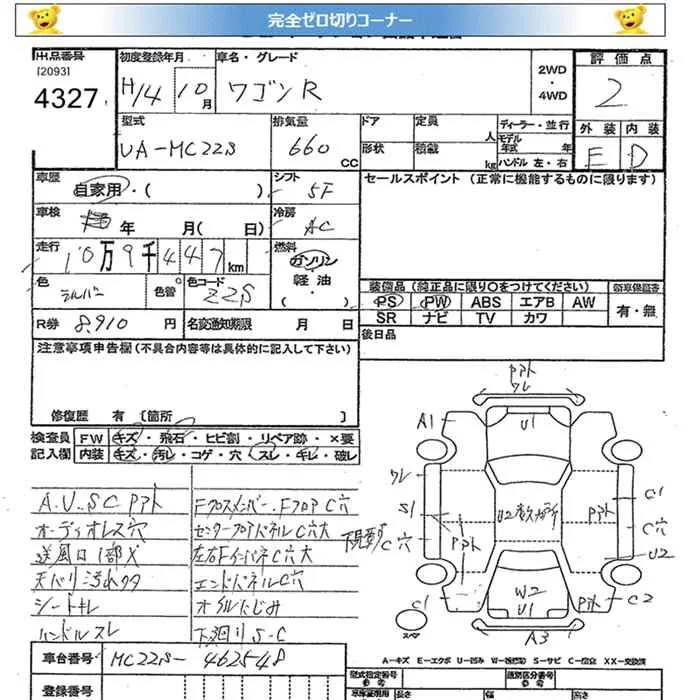 完全ゼロ切りコーナー
出品番号 初度登録年月 車名・グレード 評価点
[2093] 4327 H14 10月 ワゴンR 2WD・4WD 2
型式 排気量 ドア 定員 人 ディーラー・並行 外装 内装
UA-MC22S 660 CC 形状 積載 kg モデル年式 年 ハンドル左・右 E D
車歴 自家用・( ) シフト 5F セールスポイント (正常に機能するものに限ります)
車検 年 月( 日) 冷房 AC
走行 10万9千447km 燃料 ガソリン
軽油・( )
色 シルバー 色替 色コード Z2S 装備品 (純正品に限り○をつけてください) 新車保証書
PS PW ABS エアB AW 有・無
SR ナビ TV カワ
R券 8,910 円 名変通知期限 月 日 後日品
注意事項申告欄(不具合内容等は具体的に記入して下さい)
修復歴 有 [箇所 ]
検査員 FW キズ・飛石・ヒビ割・リペア跡・×要
記入欄 内装 キズ・汚レ・コゲ・穴・スレ・キレ・破レ
A.U.SC アト FクロスメンバーFフロアC穴
オーディオレス穴 センターフロアパネルC穴大
送風口1部X 左右FインパネC穴大
天バリ汚れ エンドパネルC穴
シートキレ オイルにじみ
ハンドルスレ 下廻りS・C
アト
ワレ
A1 U1
ワレ C1
S1 アト U2 アト C穴
C穴 U2
C1 W2 アト C2
U1
スペア A3
A-キズ E-エクボ U-凹み W-補修跡 S-サビ C-腐食 XX-交換済
車台番号 MC22S-462548 型式指定番号 類別区分番号
登録番号 車庫証明用 長さ 幅 高さ